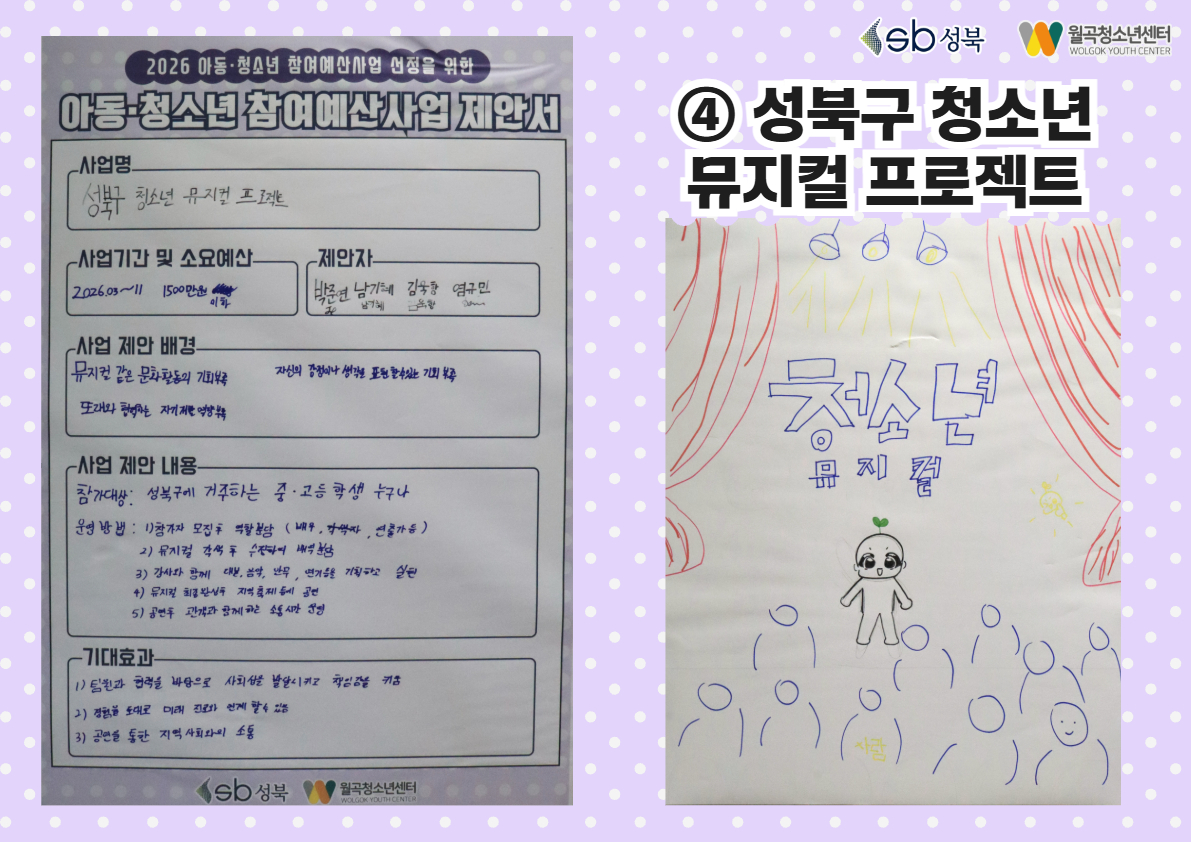 2026 아동·청소년 참여예산사업 선정을 위한
아동·청소년 참여예산사업 제안서
사업명
성북구 청소년 뮤지컬 프로젝트
사업기간 및 소요예산
2026.03~11 1500만원
이하
제안자
남기혜 염규민
사업 제안 배경
뮤지컬 같은 문화활동의 기회부족
자신의 감정이나 생각을 표현할 수 있는 기회 부족
또래와 협력하는 자기계발 역량부족
사업 제안 내용
참가대상: 성북구에 거주하는 중·고등학생 누구나
운영방법: 1) 참가자 모집 후 역할분담 (배우, 각색자, 연출가 등)
2) 뮤지컬 각색 후 수정하여 배역분담
3) 강사와 함께 대본, 음악, 안무, 연기등을 기획하고 실현
4) 뮤지컬 최종완성후 지역축제 등에 공연
5) 공연후 관객과 함께하는 소통시간 운영
기대효과
1) 팀원과 협력을 바탕으로 사회성을 발달시키고 책임감을 키움
2) 경험을 토대로 미래 진로와 연계 할 수 있음
3) 공연을 통한 지역사회와의 소통
sb성북
월곡청소년센터
WOLGOK YOUTH CENTER
sb성북
월곡청소년센터
WOLGOK YOUTH CENTER
④ 성북구 청소년
뮤지컬 프로젝트
청소년
뮤지컬
사람